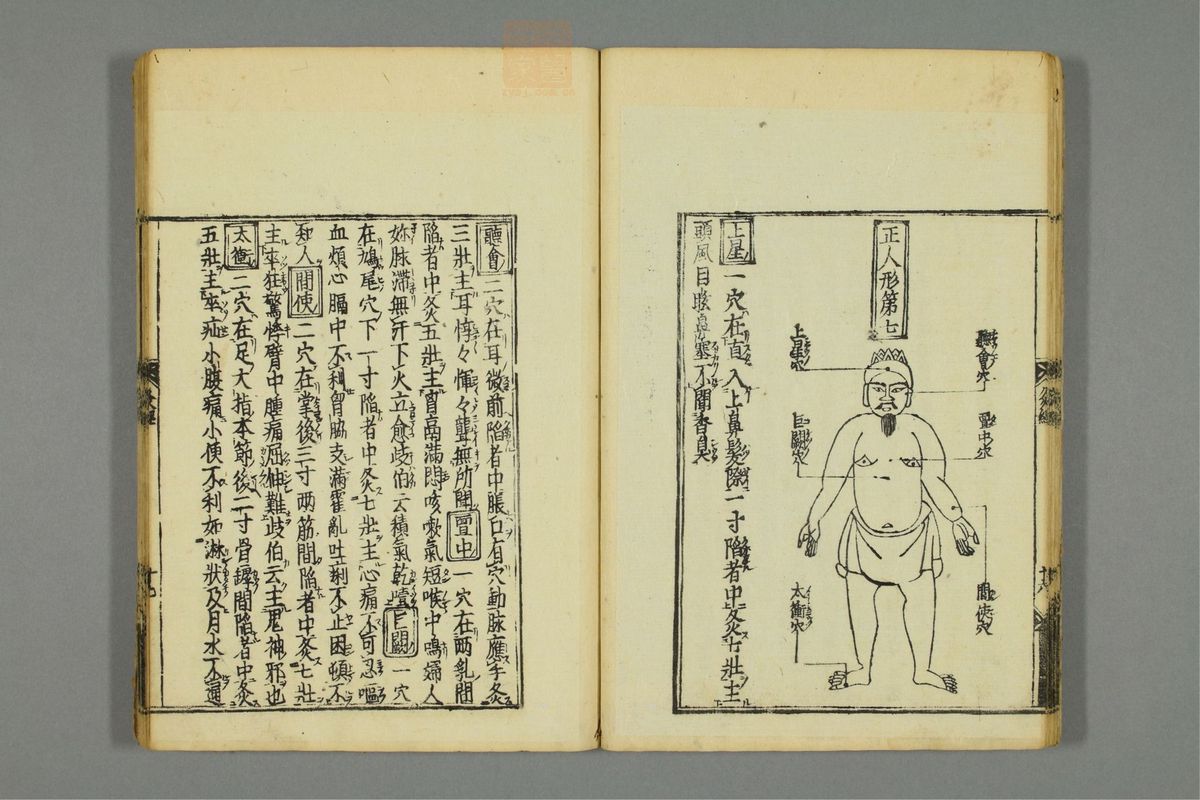 正人形第七
聽會穴
上星穴
膻中穴
巨闕穴
間使穴
太衝穴
上星 一穴在直入上鼻髮際一寸陷者中灸七壯主
頭風目眩鼻塞不聞香臭
聽會 二穴在耳微前陷者中張口有穴動脉應手灸
三壯主耳惇々惲々聾無所聞 亶中 一穴在兩乳間
陷者中灸五壯主胷鬲滿悶咳嗽氣短喉中鳴婦人
妳脉滯無汁下火立愈歧伯云積氣乾噎 巨闕 一穴
在鳩尾穴下一寸陷者中灸七壯主心痛不可忍嘔
血煩心膈中不利胷脇支滿霍亂吐利不止困頓不
知人 間使 二穴在掌後三寸兩筋間陷者中灸七壯
主卒狂驚悸臂中腫痛屈伸難歧伯云主鬼神邪也
太衝 二穴在足大指本節後二寸骨罅間陷者中灸
五壯主卒疝小腹痛小便不利如淋狀及月水不通